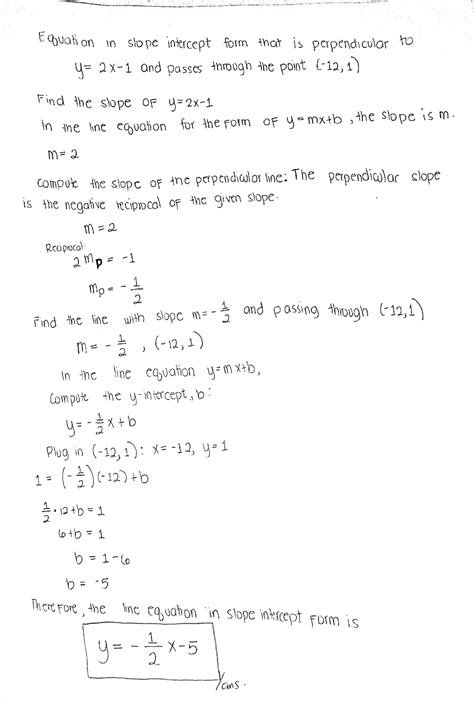 Equation in slope intercept form that is perpendicular to
y= 2x-1 and passes through the point (-12,1)
Find the slope of y=2x-1
In the line equation for the form of y=mx+b, the slope is m.
m=2
Compute the slope of the perpendicular line: The perpendicular slope
is the negative reciprocal of the given slope.
m=2
Reciprocal:
2mp = -1
mp= -1/2
Find the line with slope m=-1/2 and passing through (-12,1)
m= -1/2 , (-12,1)
In the line equation y=mx+b,
Compute the y-intercept, b:
y= -1/2x+b
Plug in (-12,1): x=-12, y=1
1= (-1/2)(-12)+b
1/2·12+b=1
6+b=1
b=1-6
b= -5
Therefore, the line equation in slope intercept form is
y= -1/2 x-5
/ans.